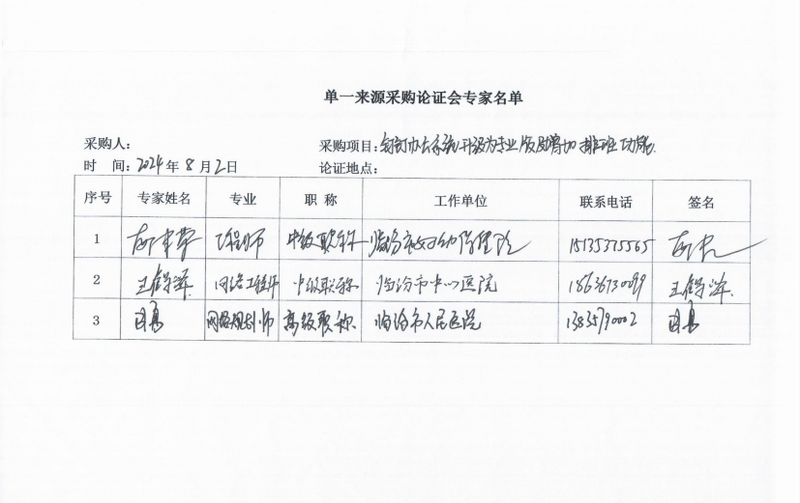 单一来源采购论证会专家名单
采购人： 采购项目：钉钉办公系统升级为专业版及增加排班功能.
时 间：2024年8月2日 论证地点：
序号 专家姓名 专业 职 称 工作单位 联系电话 签名
1 工程师 中级职称 临汾市妇幼保健院 15135375565
2 王 网络工程师 中级职称 临汾市中心医院 18636730099 王
3 网络规划师 高级职称 临汾市人民医院 13835790002